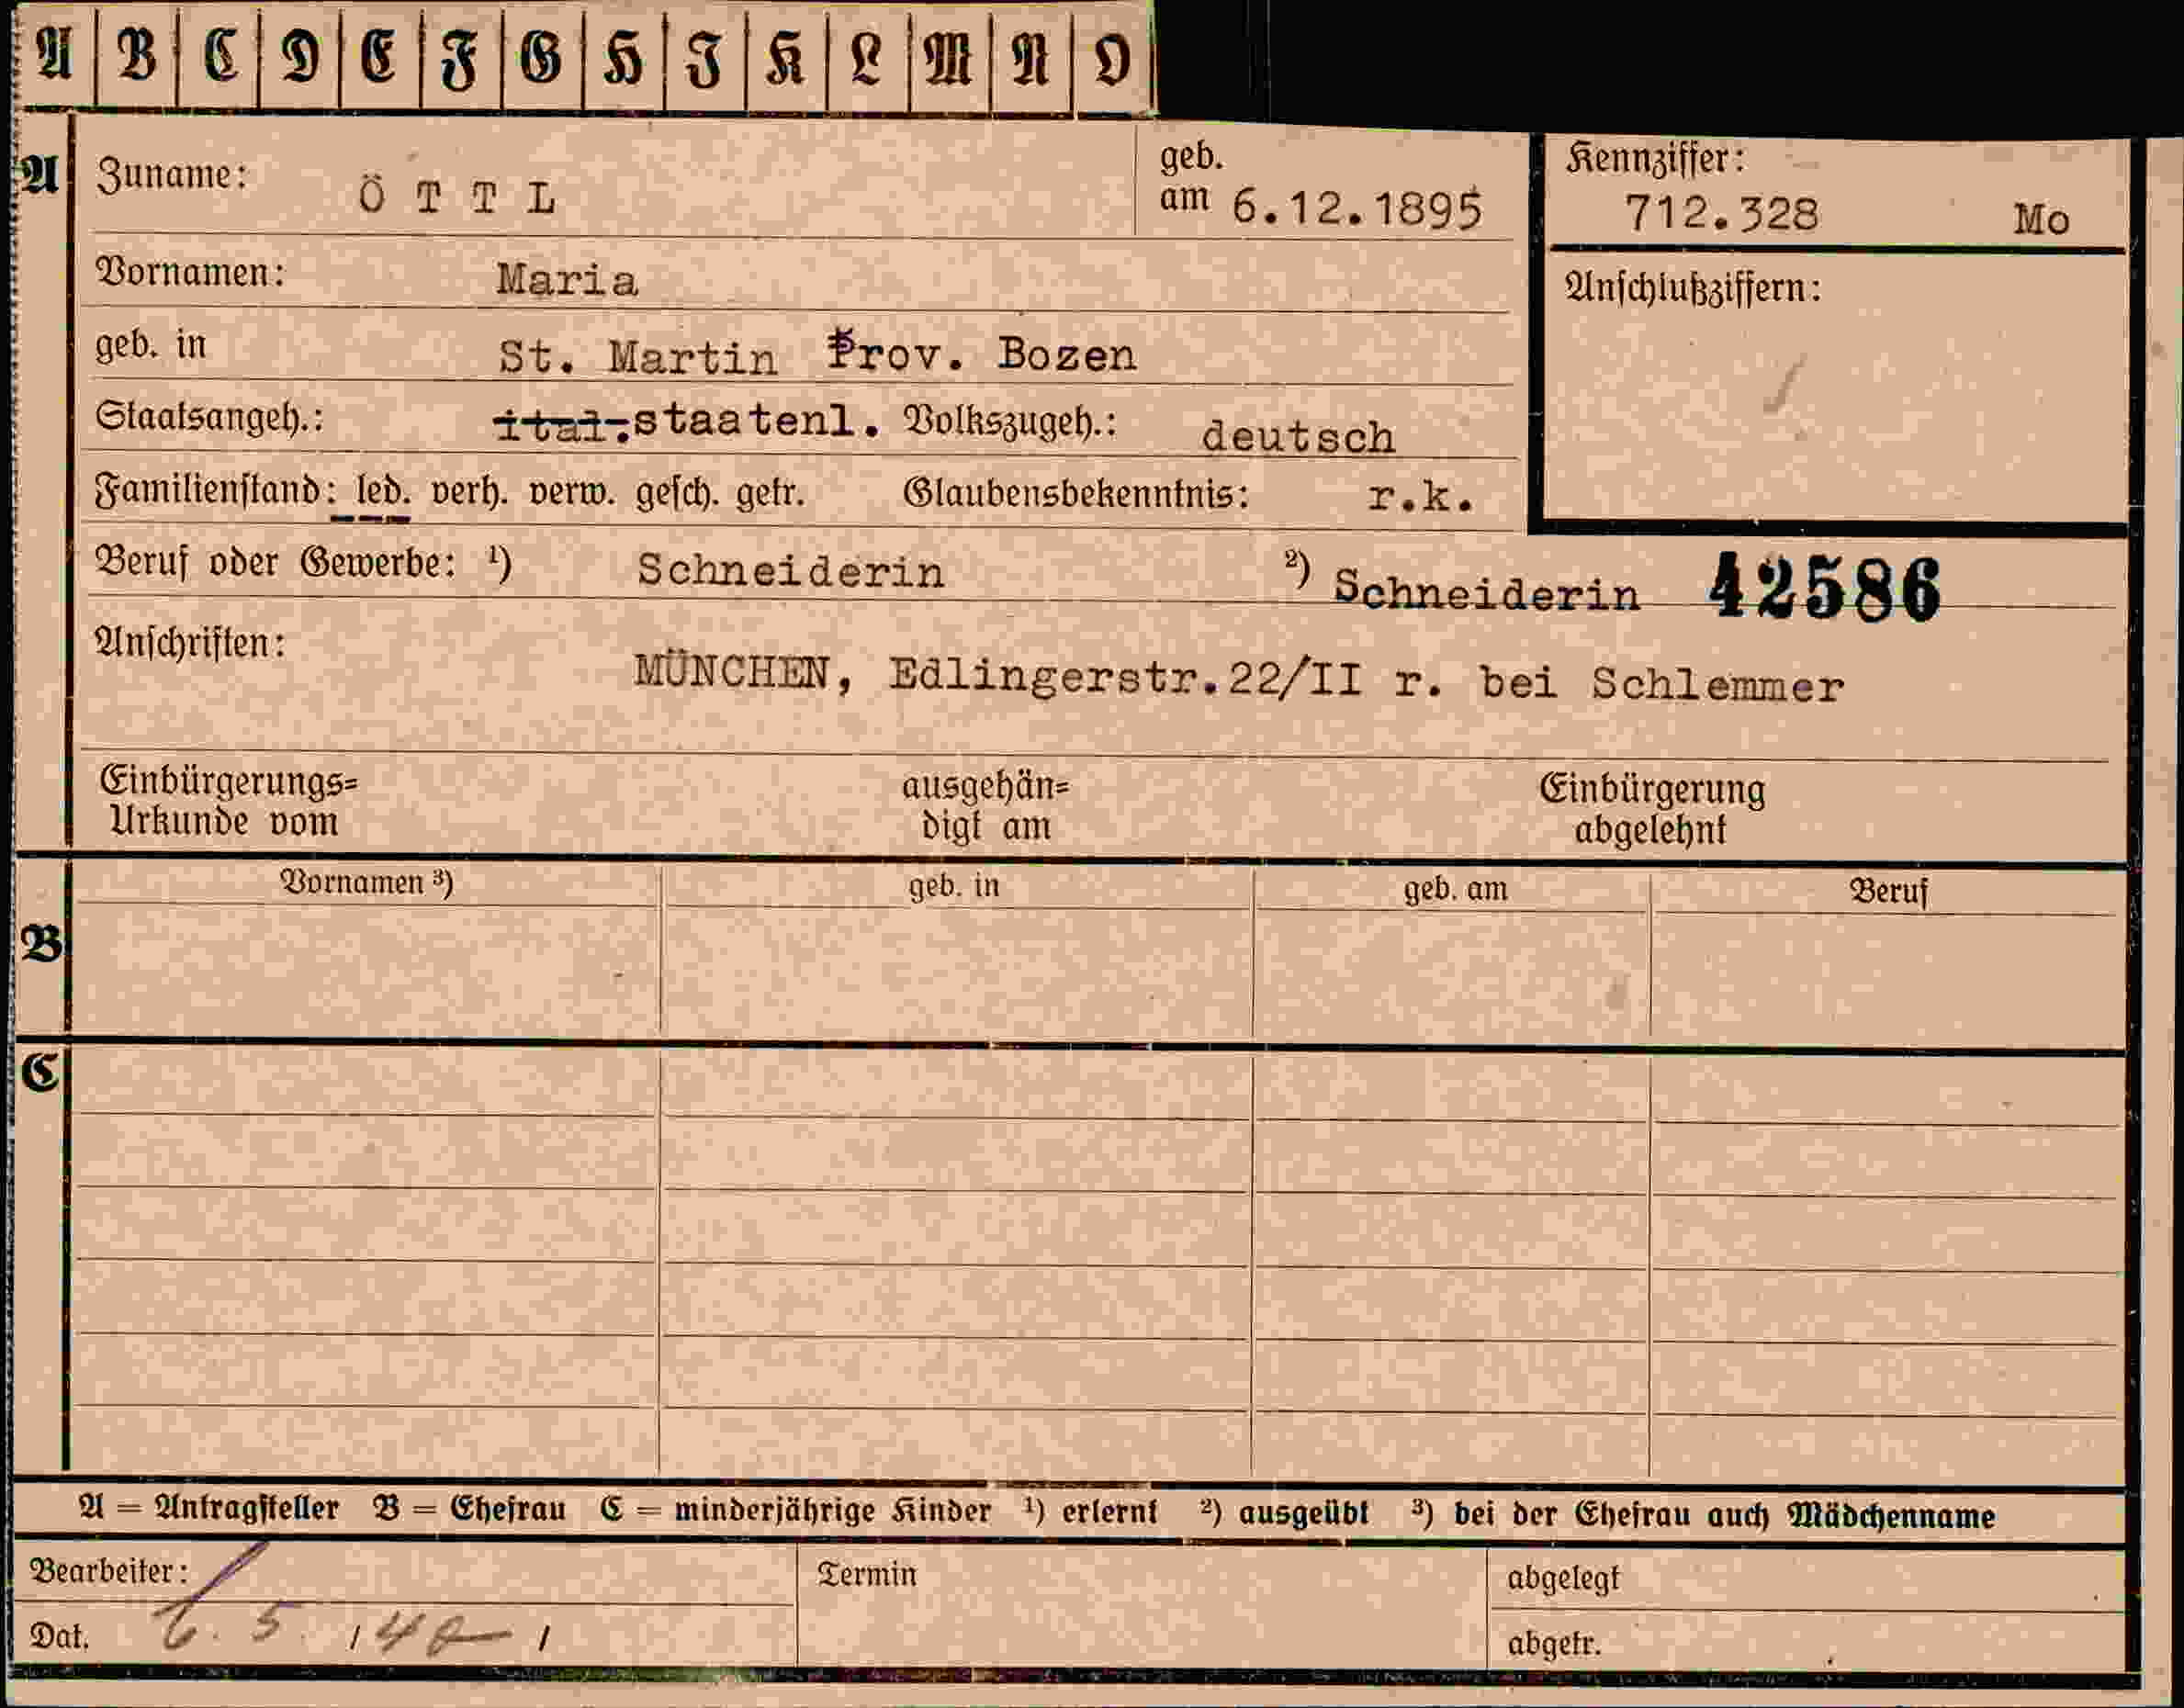 A B C D E F G H I K L M N O
A Zuname: ÖTTL geb. am 6.12.1895 Kennziffer: 712.328 Mo
Vornamen: Maria Anschlußziffern:
geb. in St. Martin Prov. Bozen
Staatsangeh.: ital. staatenl. Volkszugeh.: deutsch
Familienstand: led. verh. verw. gesch. getr. Glaubensbekenntnis: r.k.
Beruf oder Gewerbe: ¹) Schneiderin ²) Schneiderin 42586
Anschriften:
MÜNCHEN, Edlingerstr.22/II r. bei Schlemmer
Einbürgerungs= ausgehän= Einbürgerung
Urkunde vom digt am abgelehnt
Vornamen ³) geb. in geb. am Beruf
B
C
A = Antragsteller B = Ehefrau C = minderjährige Kinder ¹) erlernt ²) ausgeübt ³) bei der Ehefrau auch Mädchenname
Bearbeiter: Termin abgelegt
Dat. 6. 5. /40 / abgetr.